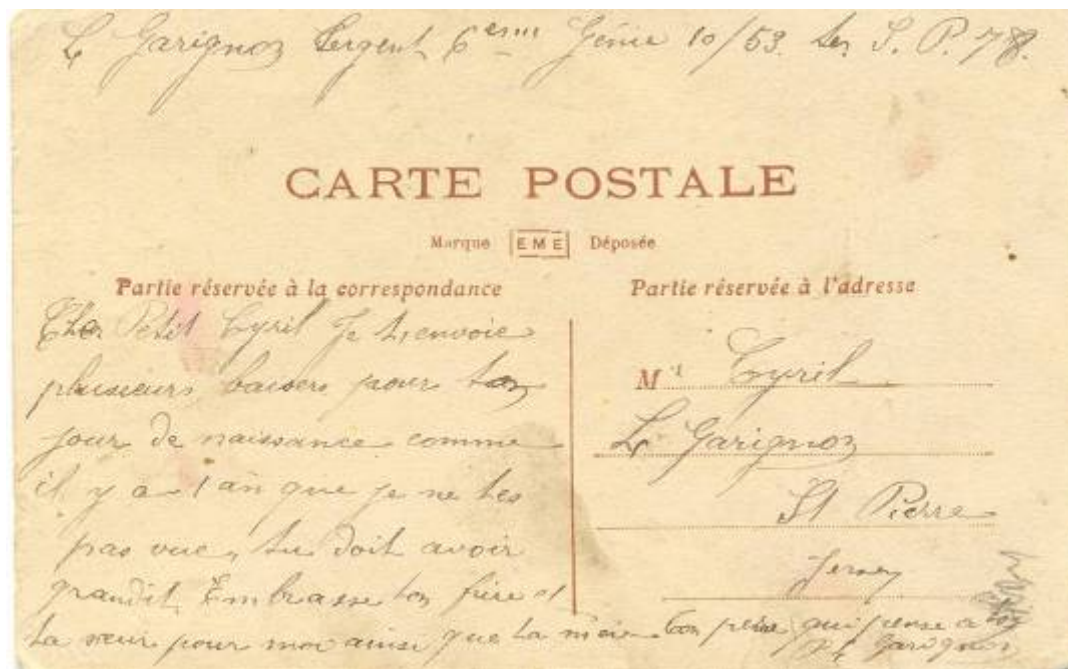 L Garignon Sergent 6 esm Génie 10/53. ter S. P. 78.
CARTE POSTALE
Marque EME Déposée
Partie réservée à la correspondance
Cher Petit Cyril Je t'envoie
plusieurs baisers pour ton
jour de naissance comme
il y a 1 an que je ne tes
pas vue, tu doit avoir
grandit, Embrasse ton frère et
ta sœur pour moi ainsi que ta mère
Ton père qui pense a toi
Garignon
Partie réservée à l'adresse
M r Cyril
L Garignon
St Pierre
Jersey